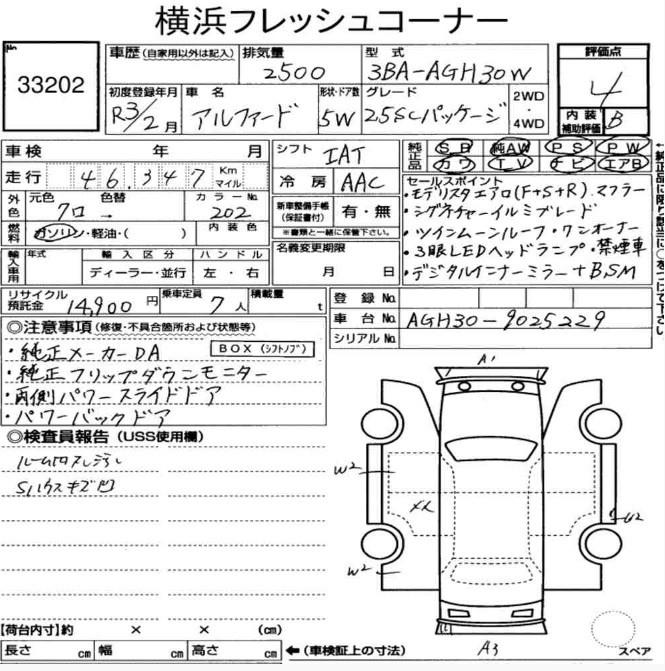 横浜フレッシュコーナー
No. 33202
車歴（自家用以外は記入） 排気量 2500 型式 3BA-AGH30W 評価点 4
初度登録年月 R3/2月 車名 アルファード 形状・ドア数 5W グレード 2.5SCパッケージ 2WD・4WD 内装補助評価 B
車検 年 月 シフト IAT 純正品 SR 純AW PS PW
走行 46,347 Km マイル 冷房 AAC カワ TV ナビ エアB
外色 元色 クロ 色替 → カラーNo. 202 新車整備手帳（保証書付） 有・無 ※書類と一緒に保管下さい。
セールスポイント
・モデリスタエアロ(F+S+R) マフラー
・シグネチャーイルミブレード
・ツインムーンルーフ・ワンオーナー
・3眼LEDヘッドランプ・禁煙車
・デジタルインナーミラー+BSM
燃料 ガソリン・軽油・（ ） 内装色 名義変更期限 月 日
輸入車用 年式 輸入区分 ディーラー・並行 ハンドル 左・右
リサイクル預託金 14,900円 乗車定員 7人 積載量 t 登録No.
車台No. AGH30-9025229
シリアルNo.
◎注意事項（修復・不具合箇所および状態等）
・純正メーカーDA BOX（シフトノブ）
・純正フリップダウンモニター
・両側パワースライドドア
・パワーバックドア
◎検査員報告（USS使用欄）
ルーム内スレ汚し
Sハウスキズ凹
A1
W2
XX
U2
W2
A3
スペア
【荷台内寸】約 × × (cm)
長さ cm 幅 cm 高さ cm ←（車検証上の寸法）